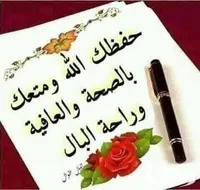 حفظك الله ومتعك
بالصحة والعافية
وراحة البال